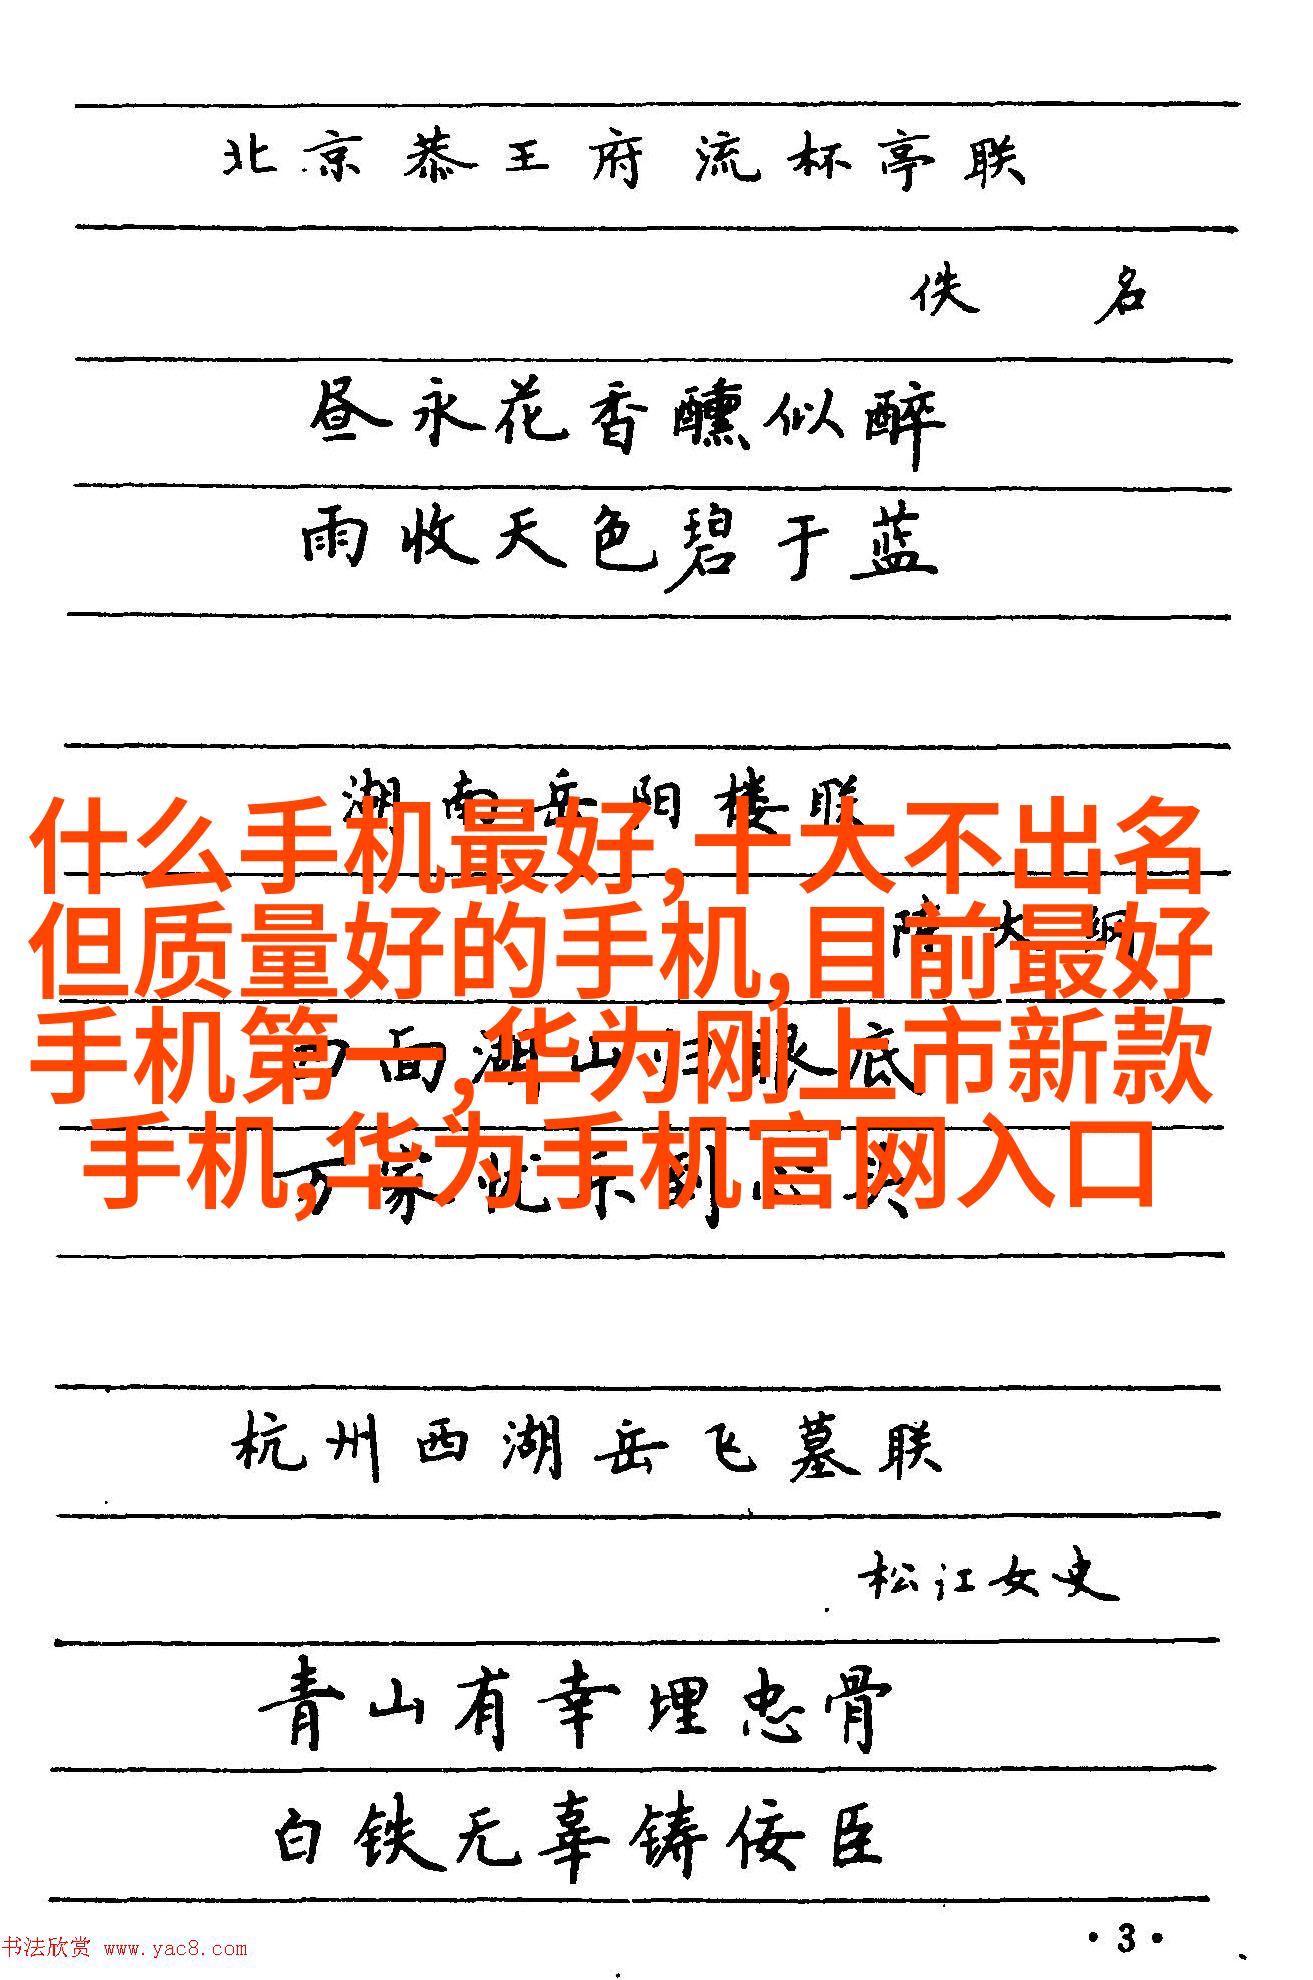 北京恭王府流杯亭联
佚 名
昼永花香醺似醉
雨收天色碧于蓝
湖南岳阳楼联
什么手机最好,十大不出名
陈大纲
但质量好的手机,目前最好
四面湖山归眼底
手机第一,华为刚上市新款
万家忧乐到心头
手机,华为手机官网入口
杭州西湖岳飞墓联
松江女史
青山有幸埋忠骨
白铁无辜铸佞臣
·3·
书法欣赏 www.yac8.com